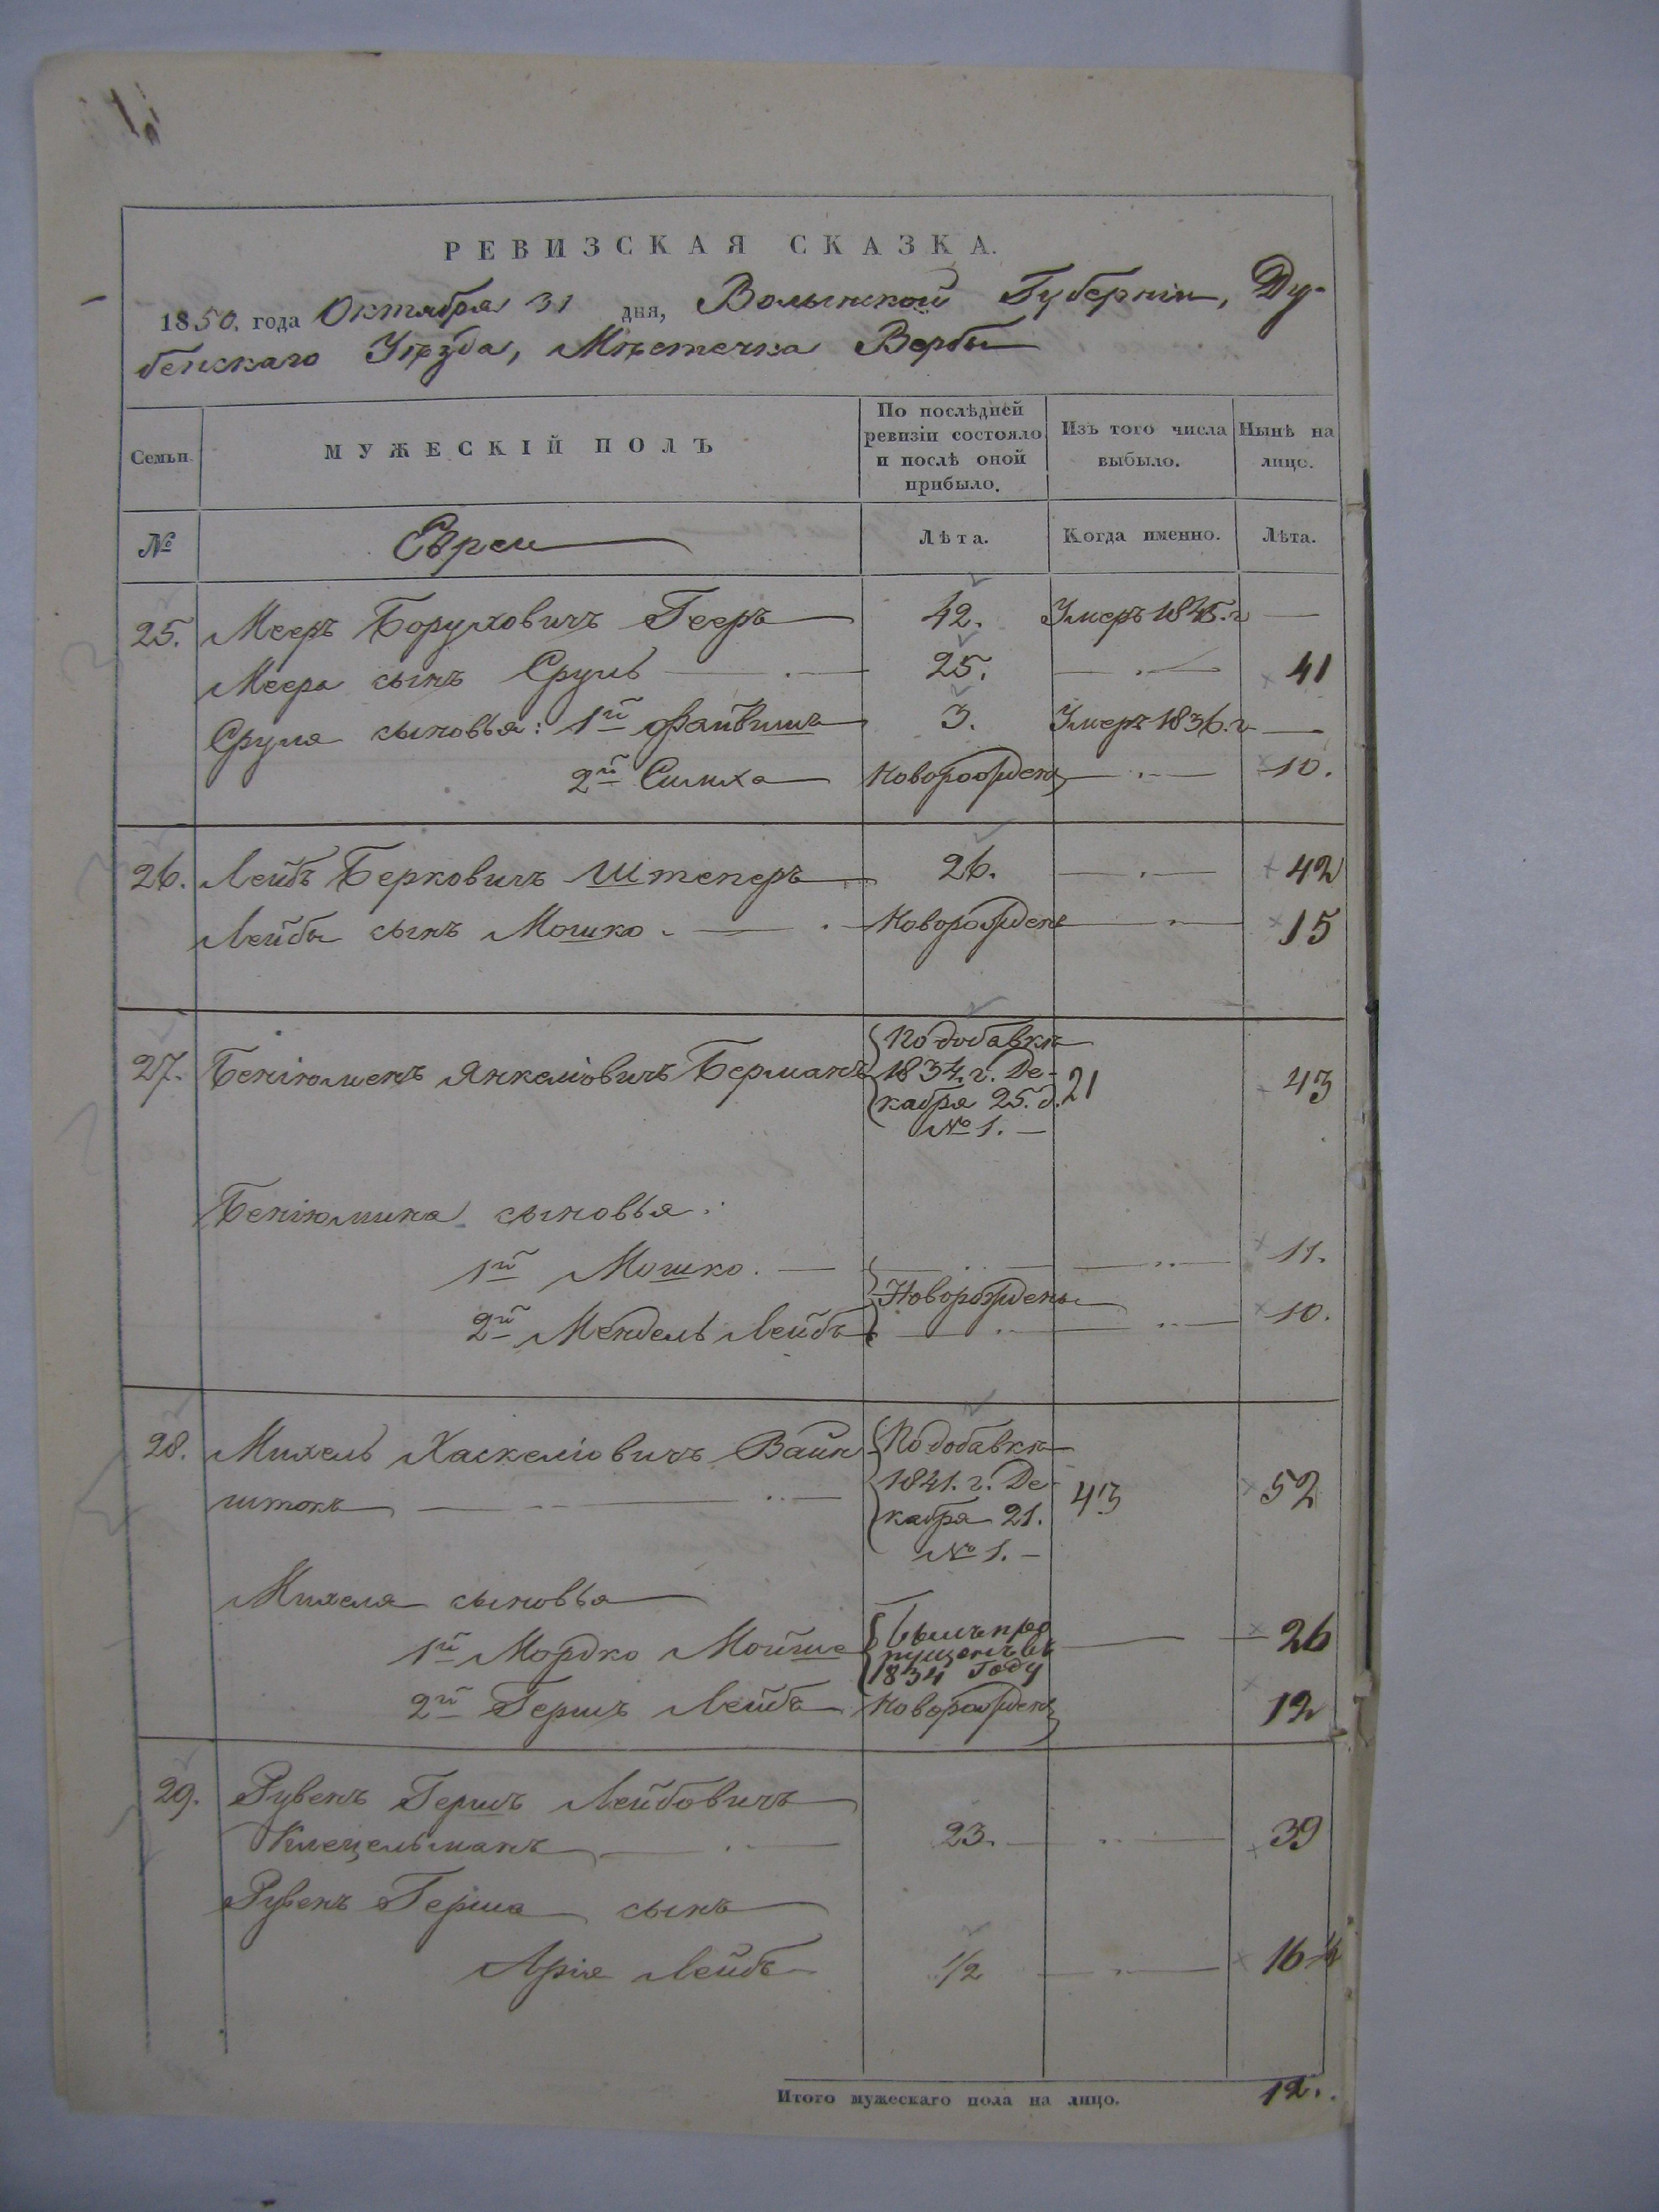 РЕВИЗСКАЯ СКАЗКА.
1850. года Октября 31 дня, Волынской Губерніи, Ду-
бенскаго Уѣзда, Мѣстечка Вербы
Семьи МУЖЕСКІЙ ПОЛЪ По послѣдней ревизіи состояло и послѣ оной прибыло. Изъ того числа выбыло. Нынѣ на лицо.
№ Евреи Лѣта. Когда именно. Лѣта.
25. Мееръ Боруховичъ Гееръ 42. Умеръ 1845. г —
Меера сынъ Сруль 25. — 41
Сруля сыновья: 1й Файвишъ 3. Умеръ 1836. г —
2й Симха Новорожденъ — 10.
26. Лейбъ Берковичъ Штеперъ 26. — 42
Лейбы сынъ Мошко. Новорожденъ — 15
27. Беніюменъ Янкеліовичъ Берманъ По добавкѣ
1834. г. Де-
кабря 25. д. 21 43
№ 1. —
Беніюмина сыновья:
1й Мошко. — 11.
Новорождены
2й Мендель Лейбъ — 10.
28. Михель Хаскеліовичъ Вайн По добавкѣ
штокъ 1841. г. Де- 43 52
кабря 21.
№ 1. —
Михеля сыновья
1й Мордко Мойше Былъ про
пущенъ въ — 26
1834 Году
2й Гершъ Лейбъ Новорожденъ 12
29. Рувенъ Гершъ Лейбовичъ
Клецельманъ 23. — 39
Рувенъ Герша сынъ
Арія Лейбъ 1/2 — 16 1/2
Итого мужескаго пола на лицо. 12.